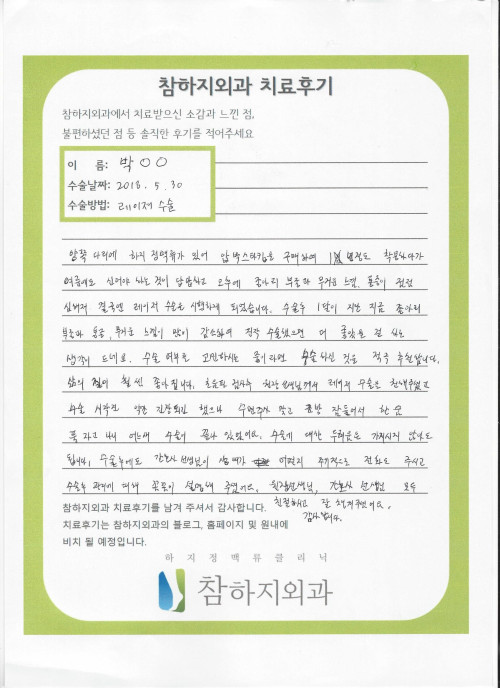 참하지외과 치료후기
참하지외과에서 치료받으신 소감과 느낀 점,
불편하셨던 점 등 솔직한 후기를 적어주세요
이 름: 박○○
수술날짜: 2018. 5. 30
수술방법: 레이저 수술
양쪽 다리에 하지정맥류가 있어 압박스타킹을 구매하여 1년정도 착용하다가
여름에도 신어야 하는 것이 답답하고 오후에 종아리 부종과 무거운 느낌, 통증이 점점
심해져 결국엔 레이저 수술을 시행하게 되었습니다. 수술후 1달이 지난 지금 종아리
부종과 통증, 무거운 느낌이 많이 감소하여 진작 수술했으면 더 좋았을 걸 하는
생각이 드네요. 수술 여부로 고민하시는 중이라면 수술하신 것을 적극 추천합니다.
삶의 질이 훨씬 좋아집니다. 초음파 검사후 원장선생님께서 레이저 수술을 권해주셨고
수술 시작전 약간 긴장되긴 했으나 수면주사 맞고 금방 잠들어서 한숨
푹 자고 나니 어느새 수술이 끝나 있었어요. 수술에 대한 두려움은 가지시지 않아도
됩니다. 수술후에도 간호사 선생님이 상태가 어떤지 주기적으로 전화도 주시고
수술후 관리에 대해 꼼꼼히 설명해 주셨어요. 원장선생님, 간호사 선생님 모두
친절하시고 잘 챙겨주셨어요.
감사합니다.
참하지외과 치료후기를 남겨 주셔서 감사합니다.
치료후기는 참하지외과의 블로그, 홈페이지 및 원내에
비치 될 예정입니다.
하지정맥류클리닉
참하지외과